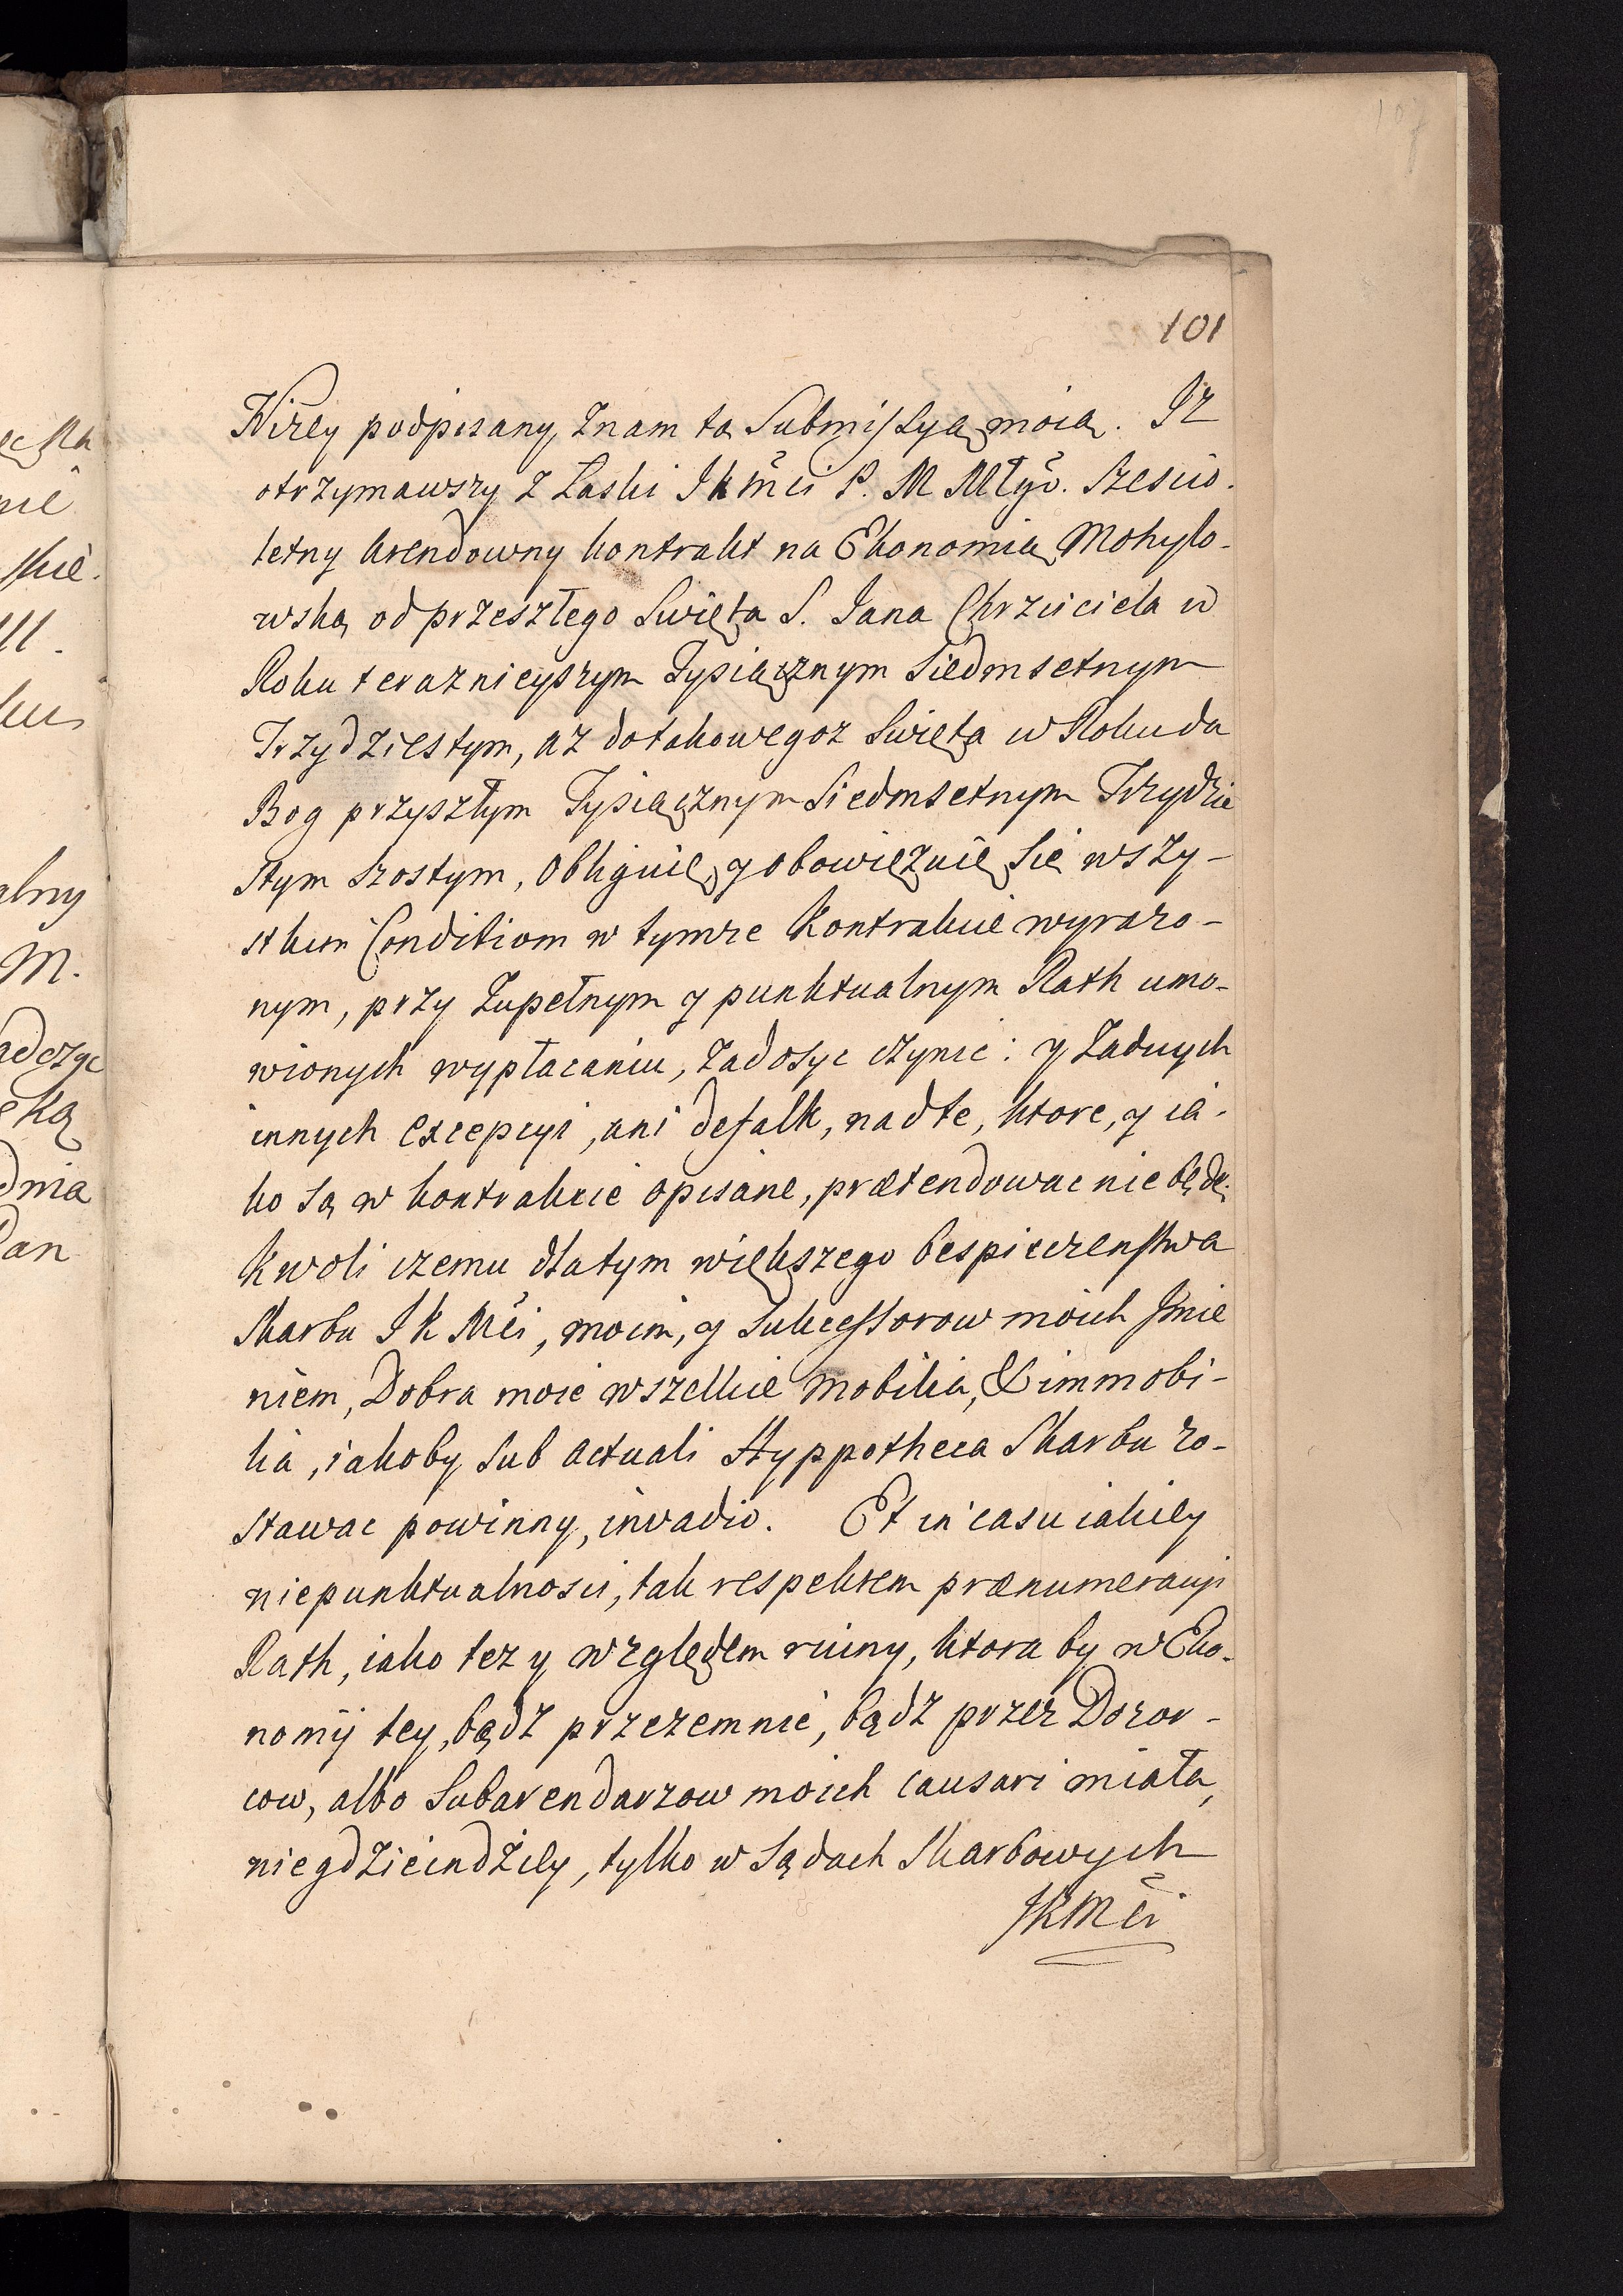 101
Nizey podpisany, znam tą Submissyą moią. Iz
otrzymawszy z Łaski I K Mči P. M Młgō. Szescio-
letny Arendowny kontrakt na Ekonomią Mohylo-
wską od przeszłego Swięta S. Iana Chrzciciela w
Roku teraznieyszym Tysiącznym Siedmsetnym
Trzydziestym, az dotakowegoz Swięta w Roku da
Bog przyszłym Tysiącznym Siedmsetnym Trzydzie
stym szostym, obliguię, y obowięzuię się wszy-
stkim Conditiom w tymze Kontrakcie wyrazo-
nym, przy zupełnym y punktualnym Rath umo-
wionych wypłacaniu, zadosyc czynic: y Zadnych
innych excepcyi, ani defalk, nadte, ktore, y ia-
ko są w kontrakcie opisane, prætendowac nie będę.
Kwoli czemu dla tym większego bespieczenstwa
Skarbu I K Mči, moim, y Sukcessorow moich Imie
niem, Dobra moie wszelkie mobilia, & immobi-
lia, iakoby sub actuali Hyppotheca Skarbu zo-
stawac powinny, invadio. Et in casu iakiey
niepunktualnosci, tak respektem prænumeracyi
Rath, iako tez y względem ruiny, ktora by w Eko-
nomij tey, bądz przezemnie, bądz przez Dozor-
cow, albo Subarendarzow moich causari miała,
niegdzieindziey, tylko w Sądach Skarbowych
IKMči